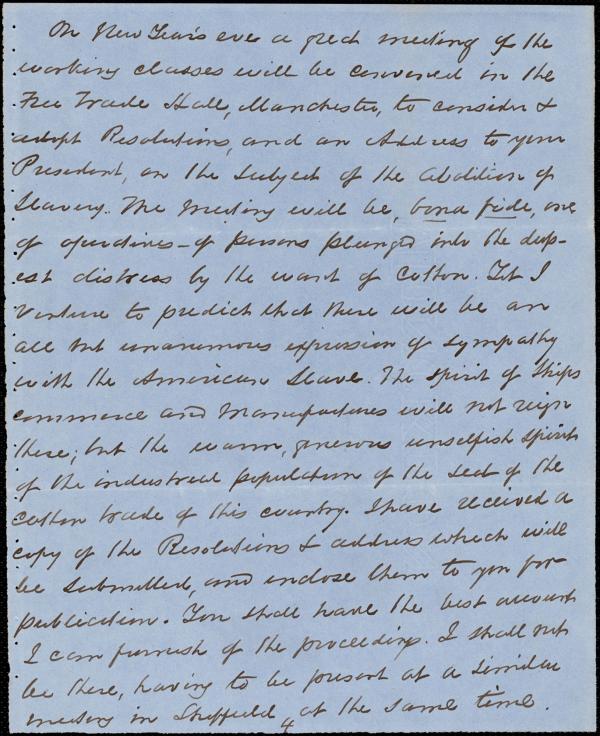 On New Year's eve a great meeting of the
working classes will be convened in the
Free Trade Hall, Manchester, to consider &
adopt Resolutions, and an Address to your
President, on the subject of the Abolition of
Slavery. The meeting will be, bona fide, one
of operatives – of persons plunged into the deep-
est distress by the want of Cotton. Yet I
venture to predict that there will be an
all but unanimous expression of sympathy
with the American Slave. The spirit of Ships
commerce and Manufactures will not reign
there; but the warm, generous unselfish spirit
of the industrial population of the seat of the
Cotton trade of this country. I have received a
copy of the Resolutions & address which will
be submitted, and enclose them to you for
publication. You shall have the best account
I can furnish of the proceedings. I shall not
be there, having to be present at a similar
meeting in Sheffield at the same time.
4